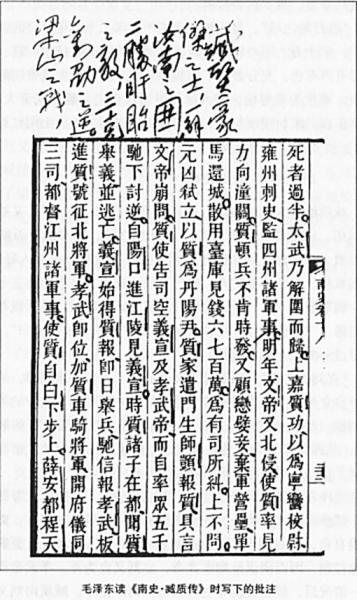 臧質豪
傑之士，解
汝南之围
胜盱眙
之敌，
梁山之戰
死者過半太武乃解圍而歸上嘉質功以為寧蠻校尉
雍州刺史監四州諸軍事明年文帝又北侵使質率見
力向潼關質頓兵不肯時發又顧戀嬖妾棄軍營壘單
馬還城散用臺庫見錢六七百萬為有司所糾上不問
元凶弒立以質為丹陽尹質家遣門生師顗報質具言
文帝崩問質使告司空義宣及孝武帝而自率眾五千
馳下討逆自陽口進江陵見義宣時質諸子在都聞質
舉義並逃亡義宣始得質報即日舉兵馳信報孝武板
進質號征北將軍孝武即位加質車騎將軍開府儀同
三司都督江州諸軍事使質自白下步上薛安都程天
毛泽东读《南史·臧质传》时写下的批注